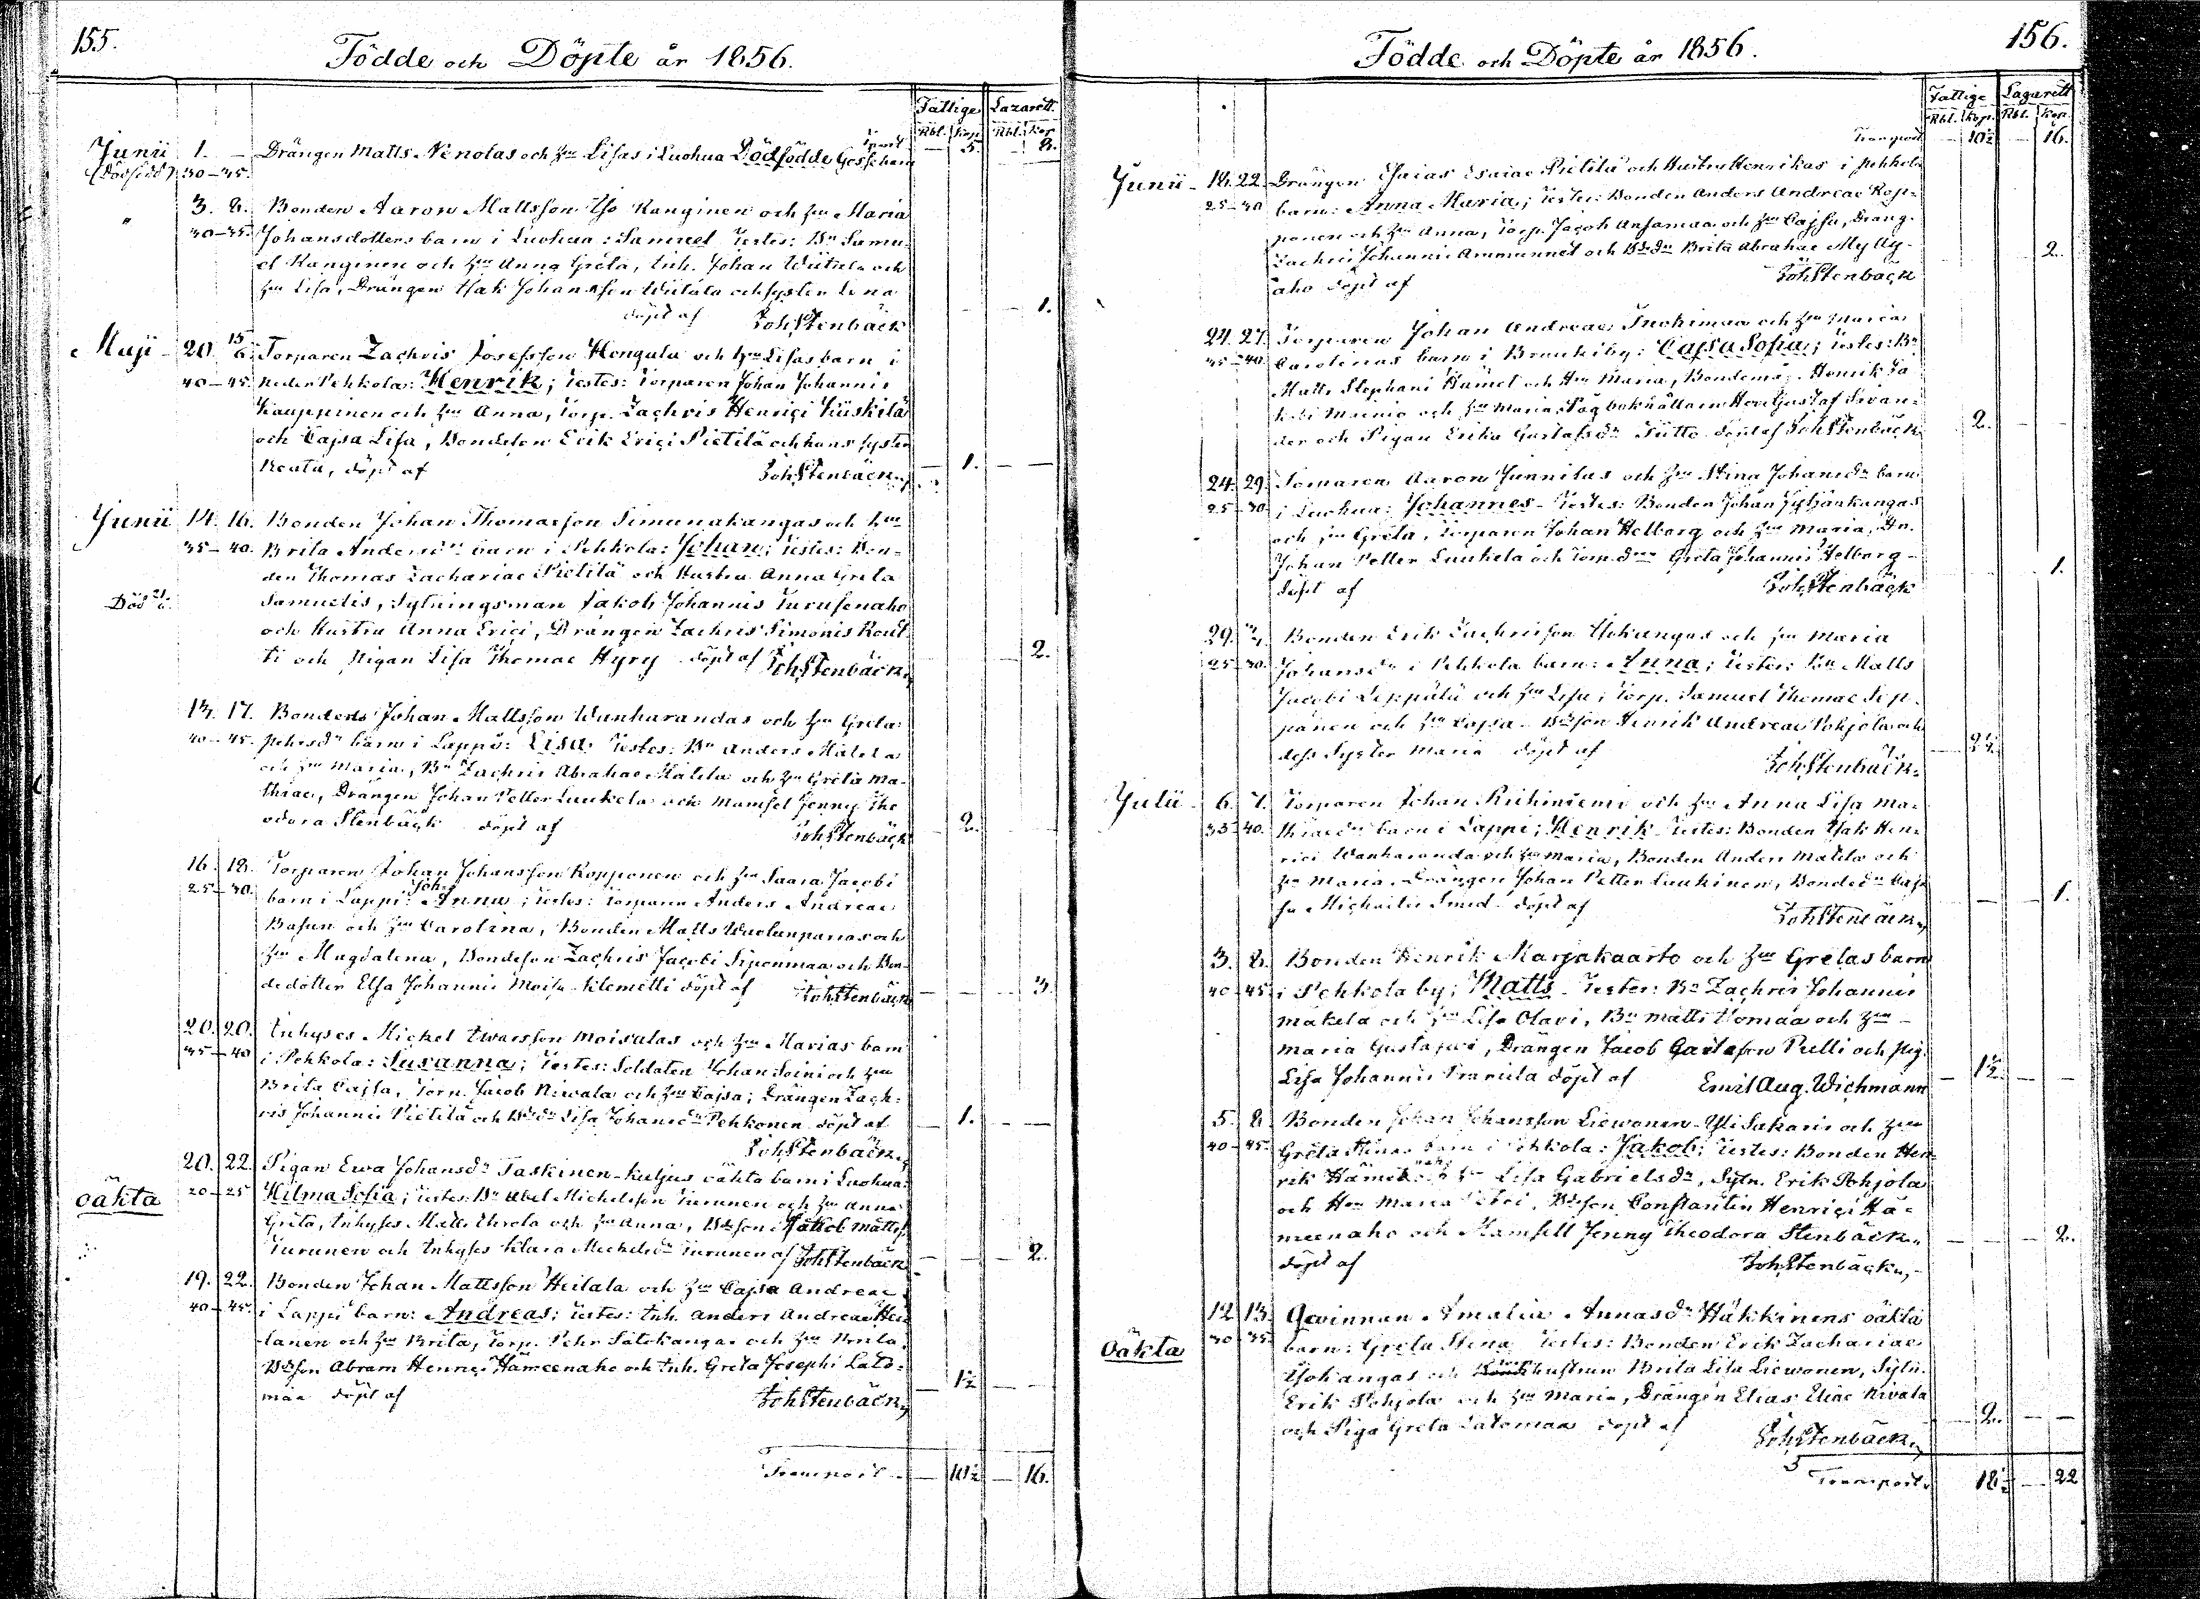 155.
Födde och Döpte år 1856.
Fattige Lazarett.
Rbl. Kop. Rbl. Kop.
Junii 1. Drängen Matts Nenolas och hu Lisas i Luohua Dödfödde Gossebarn 5. 8.
(Dödfödd) 30-35.
3. 8. Bonden Aaron Mattsson Iso Kanginen och hu Maria
30-35. Johansdotters barn i Luohua: Samuel Testes: Bn Samu-
el Kanginen och hu Anna Greta, Inh. Johan Wiitala och
hu Lisa, Drängen Isak Johansson Wiitala och syster Lena
döpt af JohStenbäck 1.
Maji 20. 15/6. Torparen Zachris Josefsson Hongala och hu Lisas barn i
40-45. Neder Pehkola: Henrik; Testes: Torparen Johan Johannis
Kauppinen och hu Anna, Torp. Zachris Henrici Kiiskilä
och Cajsa Lisa, Bondeson Erik Erici Pietilä och hans syster
Beata, döpt af JohStenbäck 1.
Junii 14. 16. Bonden Johan Thomasson Simunakangas och hu
35-40. Brita Andersdr barn i Pehkola: Johan; Testes: Bon-
den Thomas Zachariae Pietilä och Hustru Anna Greta
Död Samuelis, Sytningsman Jakob Johannis Turusenaho
och Hustru Anna Erici, Drängen Zachris Simonis Rout-
ti och Pigan Lisa Thomae Hyry döpt af JohStenbäck 2.
17. Bonden Johan Mattsson Wanharandas och hu Greta
40-45. Pehrsdr barn i Lappi: Lisa. Testes: Bn Anders Matila
och hu Maria, Bn Zachris Abrahae Matila och hu Greta Ma-
thiae, Drängen Johan Petter Luukela och Mamsel Jenny The-
odora Stenbäck döpt af JohStenbäck 2.
16. 18. Torparen Johan Johansson Kopponen och hu Saara Jacobi
25-30. barn i Lappi: Joh. Anna; Testes: Torparen Anders Andreae
och hu Carolina, Bonden Matts och
hu Magdalena, Bondeson Zachris Jacobi och Bon-
dedotter Elsa Johannis döpt af JohStenbäck 3.
20. 20. Inhyses Mickel Ewarsson Moisalas och hu Marias barn
35-40 i Pehkola: Susanna; Testes: Soldaten Johan Soini och hu
Brita Cajsa, Torp. Jacob Niwala och hu Cajsa; Drängen Zach-
ris Johannis Pietilä och Bdedr Lisa Johansdr Pehkonen döpt af 1.
JohStenbäck
20. 22. Pigan Ewa Johansdr Taskinen-kuljus oäkta barn i Luohua:
oäkta 20-25 Hilma Sofia; Testes: Bn Abel Michelsson Turunen och hu Anna
Greta, Inhyses Matts och hu Anna, Bdeson Jakob Mattss.
Turunen och Inhyses Klara Michelsdr Turunen af JohStenbäck 2.
19. 22. Bonden Johan Mattsson Heilala och hu Cajsa Andreae
40-45. i Lappi barn: Andreas; Testes: Inh. Anders Andreae Hei-
lanen och hu Brita, Torp. Pehr Satokangas och hu Brita,
Bdeson Abram Henrici Hämeenaho och Inh. Greta Josephi Lato-
maa döpt af JohStenbäck 1½
Transport 10½ 16.
156.
Födde och Döpte år 1856.
Fattige Lazarett
Rbl. Kop. Rbl. Kop.
Transport 10½ 16.
Junii 18. 22. Drängen Esaias Esaiae Pietilä och Hustru Henrikas i Pehkola
25-30 barn: Anna Maria; Testes: Bonden Anders Andreae Kop-
ponen och hu Anna, Torp. Jacob Ansamaa och hu Cajsa, Dräng.
Zachris Johannis Ammunnet och Bdedr Brita Abrahae Aly Ay-
äho döpt af JohStenbäck 2.
24. 27. Torparen Johan Andreae Inohimaa och hu Maria
35-40. Carolinas barn i Brunkeiby: Cajsa Sofia; Testes: Bn
Matts Stephani Hämet och Hu Maria, Bondemåg. Henrik Ja-
kobi och hu Maria, bokhållaren Herr Gustaf Swan-
der och Pigan Erika Gustafsdr Tutto döpt af JohStenbäck 2.
24. 29. Aaron Junnilas och hu Stina Johansdr barn
25-30 i Luohua: Johannes Testes: Bonden Johan
och hu Greta, Torparen Johan Helborg och hu Maria, Dr.
Johan Petter Luukela och Torp.dr Greta Johannis Helborg
döpt af JohStenbäck 1.
29. Bonden Erik Zachrisson Isokangas och hu Maria
25-30. Johansdr i Pehkola barn: Anna; Testes: Bn Matts
Jacobi Leppälä och hu Lisa; Torp. Samuel Thomae Sep-
pänen och hu Cajsa Bdeson Henrik Andreae Pohjola och
dess Syster Maria döpt af JohStenbäck 2½
Julii 6. 7. Torparen Johan Riihiniemi och hu Anna Lisa Ma-
35-40. thiaedr barn i Lappi; Henrik Testes: Bonden Isak Hen-
rici Wanharanda och hu Maria, Bonden Anders Matila och
hu Maria. Drängen Johan Petter Luukinen, Bondedr Caj-
sa Michaelis Smed döpt af JohStenbäck 1.
3. 8. Bonden Henrik Marjakaarto och hu Gretas barn
40-45 i Pehkola by; Matts Testes: Bn Zachris Johannis
Mäkelä och hu Lisa Olavi, Bn Matts Uomaa och hu
Maria Gustavi, Drängen Jacob Gustafson Pelli och Pig.
Lisa Johannis döpt af Emil Aug. Wichmann 1½
5. 8. Bonden Johan Johansson Liewonen Yli Sakaris och hu
40-45 Greta Stinas barn i Pehkola: Jakob; Testes: Bonden Hen-
rik hu Lisa Gabrielsdr, Sytn. Erik Pohjola
och Hu Maria, Bdeson Constantin Henrici Hä-
meenaho och Mamsell Jenny Theodora Stenbäck 2.
döpt af JohStenbäck
12. 13. Qwinnan Amalia Annasdr Häkkinens oäkta
Oäkta 30 35 barn: Greta Stina Testes: Bonden Erik Zachariae
Isokangas och hustrun Brita Lisa Liewonen, Sytn.
Erik Pohjola och hu Maria, Drängen Elias Eliae Niwala
och Piga Greta Latomaa döpt af 2.
JohStenbäck
Transport 18½ 22